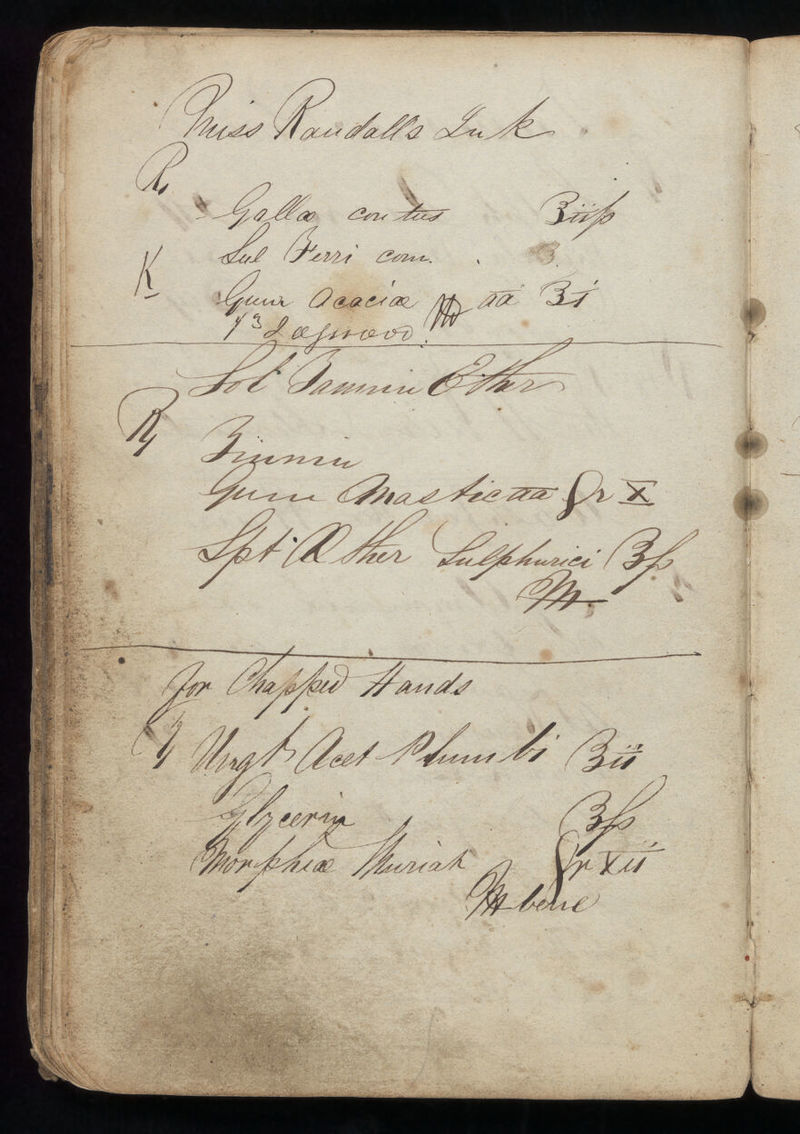 Miss Randalls Ink
R.
Gallæ contus ℥iiß
Sul Ferri com. ʒ
K
Gum Acaciæ aa ℥i
Logwood
Sol Tannin Ether
℞ Tinnin
Gum Mastic aa gr X
Spt Æther Sulphurici ℥ß
M
for Chapped Hands
℞ Ungt Acet Plumbi ℥ii
Glycerin ℥ß
Morphiæ Muriat gr Xii
M bene